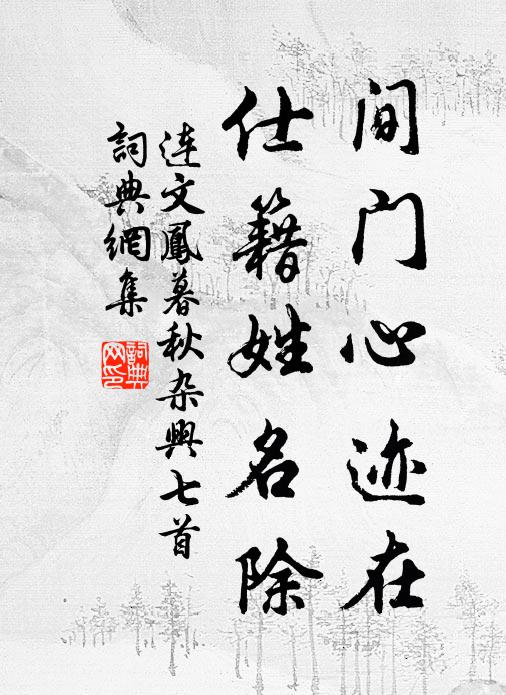 间门心迹在
仕籍姓名除
连文鳳暮秋杂興七首
詞典網集
詞典网印